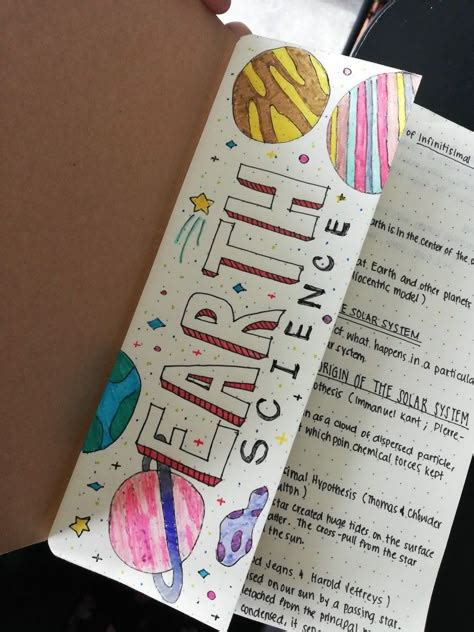 EARTH
SCIENCE
of Infinitisimal
earth is in the center of the
at Earth and other planets
iocentric model)
E SOLAR SYSTEM
of what happens in a particula
r system.
ORIGIN OF THE SOLAR SYSTEM
pothesis (Immanuel Kant ; Pierre-
n as a cloud of dispersed particle,
t which poin chemical forces kept
simal Hypothesis (Thomas &
ulton)
star created huge tides on the surface
atter. The cross-pull from the star
the sun.
d Jeans & Harold Jeffreys)
ised on our sun by a passing star.
detached from the principal
condensed, it